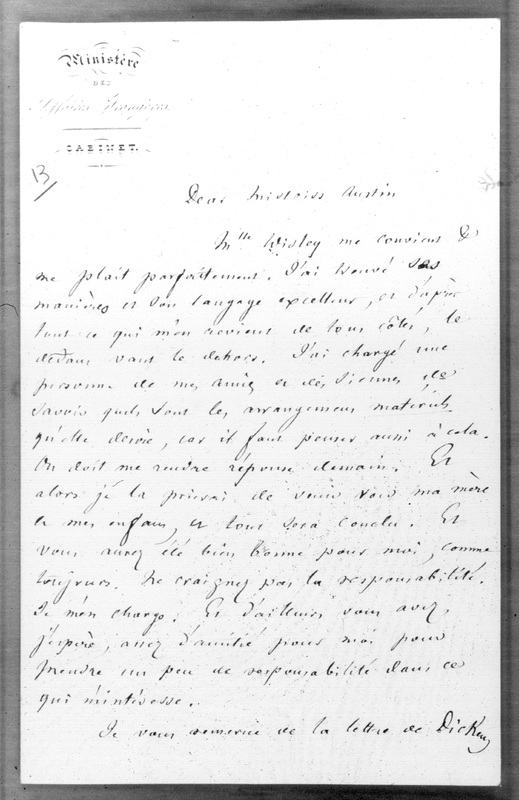 Ministère
DES
Affaires Etrangères
CABINET.
13/
Dear Mistriss Austin
Mlle Wisley me convient &
me plait parfaitement. J'ai trouvé ses
manières et son langage excellens, et d'après
tout ce qui m'en revient de tous côtés, le
dedans vaut le dehors. J'ai chargé une
personne de mes amies et des siennes de
savoir quels sont les arrangemens matériels
qu'elle désire, car il faut penser aussi à cela.
On doit me rendre réponse demain. Et
alors je la prierai de venir voir ma mère
et mes enfans, et tout sera conclu. Et
vous aurez été bien bonne pour moi, comme
toujours. Ne craignez pas la responsabilité.
Je m'en charge. Et d'ailleurs vous avez,
j'espère, assez d'amitié pour moi pour
prendre un peu de responsabilité dans ce
qui m'intéresse.
Je vous remercie de la lettre de Dickens